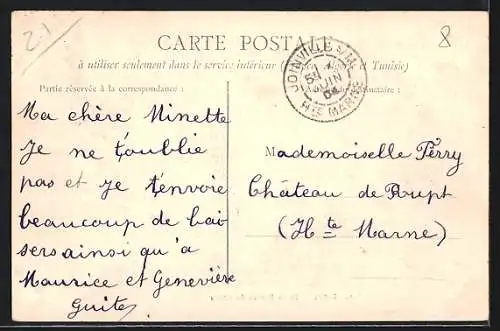 21
8
CARTE POSTALE
à utiliser seulement dans le service intérieur
et Tunisie)
JOINVILLE S/M.
JUIN
04
HTE MARNE
Partie réservée à la correspondance :
Ma chère Minette
Je ne t'oublie
pas et je t'envoie
beaucoup de bai
sers ainsi qu'à
Maurice et Geneviève
Guite
Mademoiselle Perry
Château de Rupt
(Hte Marne)